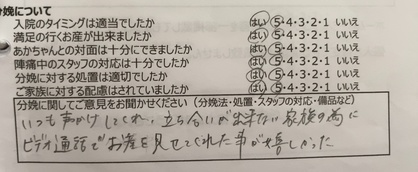 分娩について
入院のタイミングは適当でしたか はい 5・4・3・2・1 いいえ
満足の行くお産が出来ましたか はい 5・4・3・2・1 いいえ
あかちゃんとの対面は十分にできましたか はい 5・4・3・2・1 いいえ
陣痛中のスタッフの対応は十分でしたか はい 5・4・3・2・1 いいえ
分娩に対する処置は適切でしたか はい 5・4・3・2・1 いいえ
ご家族に対する配慮はされていましたか はい 5・4・3・2・1 いいえ
分娩に関してご意見をお聞かせください(分娩法・処置・スタッフの対応・備品など)
いつも声かけしてくれ、立ち合いが出来ない家族の為に
ビデオ通話でお産を見せてくれた事が嬉しかった